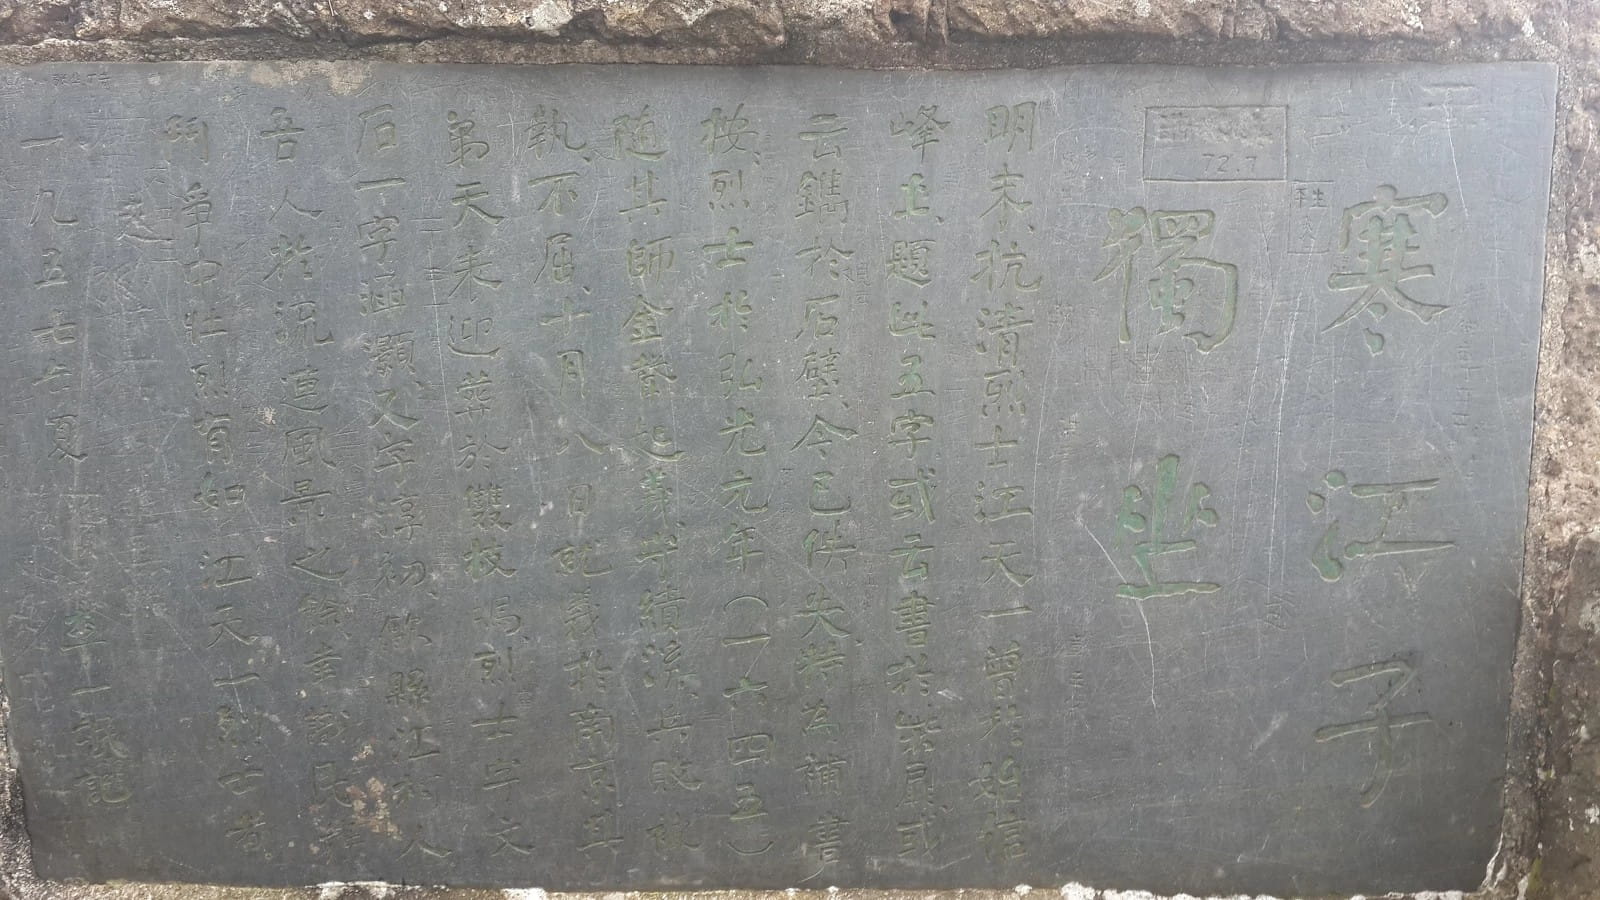 寒江子
獨坐
明末、抗清烈士江天一曾於始信
峰上、題此五字或云書於崇屋、或
云鐫於石壁、今已佚失、特為補書
按、烈士於弘光元年(一六四五)
隨其師金聲起義、守績溪、兵敗被
執、不屈、十月八日就義於南京、其
弟天表迎葬於雙枝塢、烈士字文
石、一字涵顥、又字淳初、歙縣江村人
吾人於流連風景之餘、幸
爭中壯烈有如江天一烈士者
一九五七年夏
記
72.7